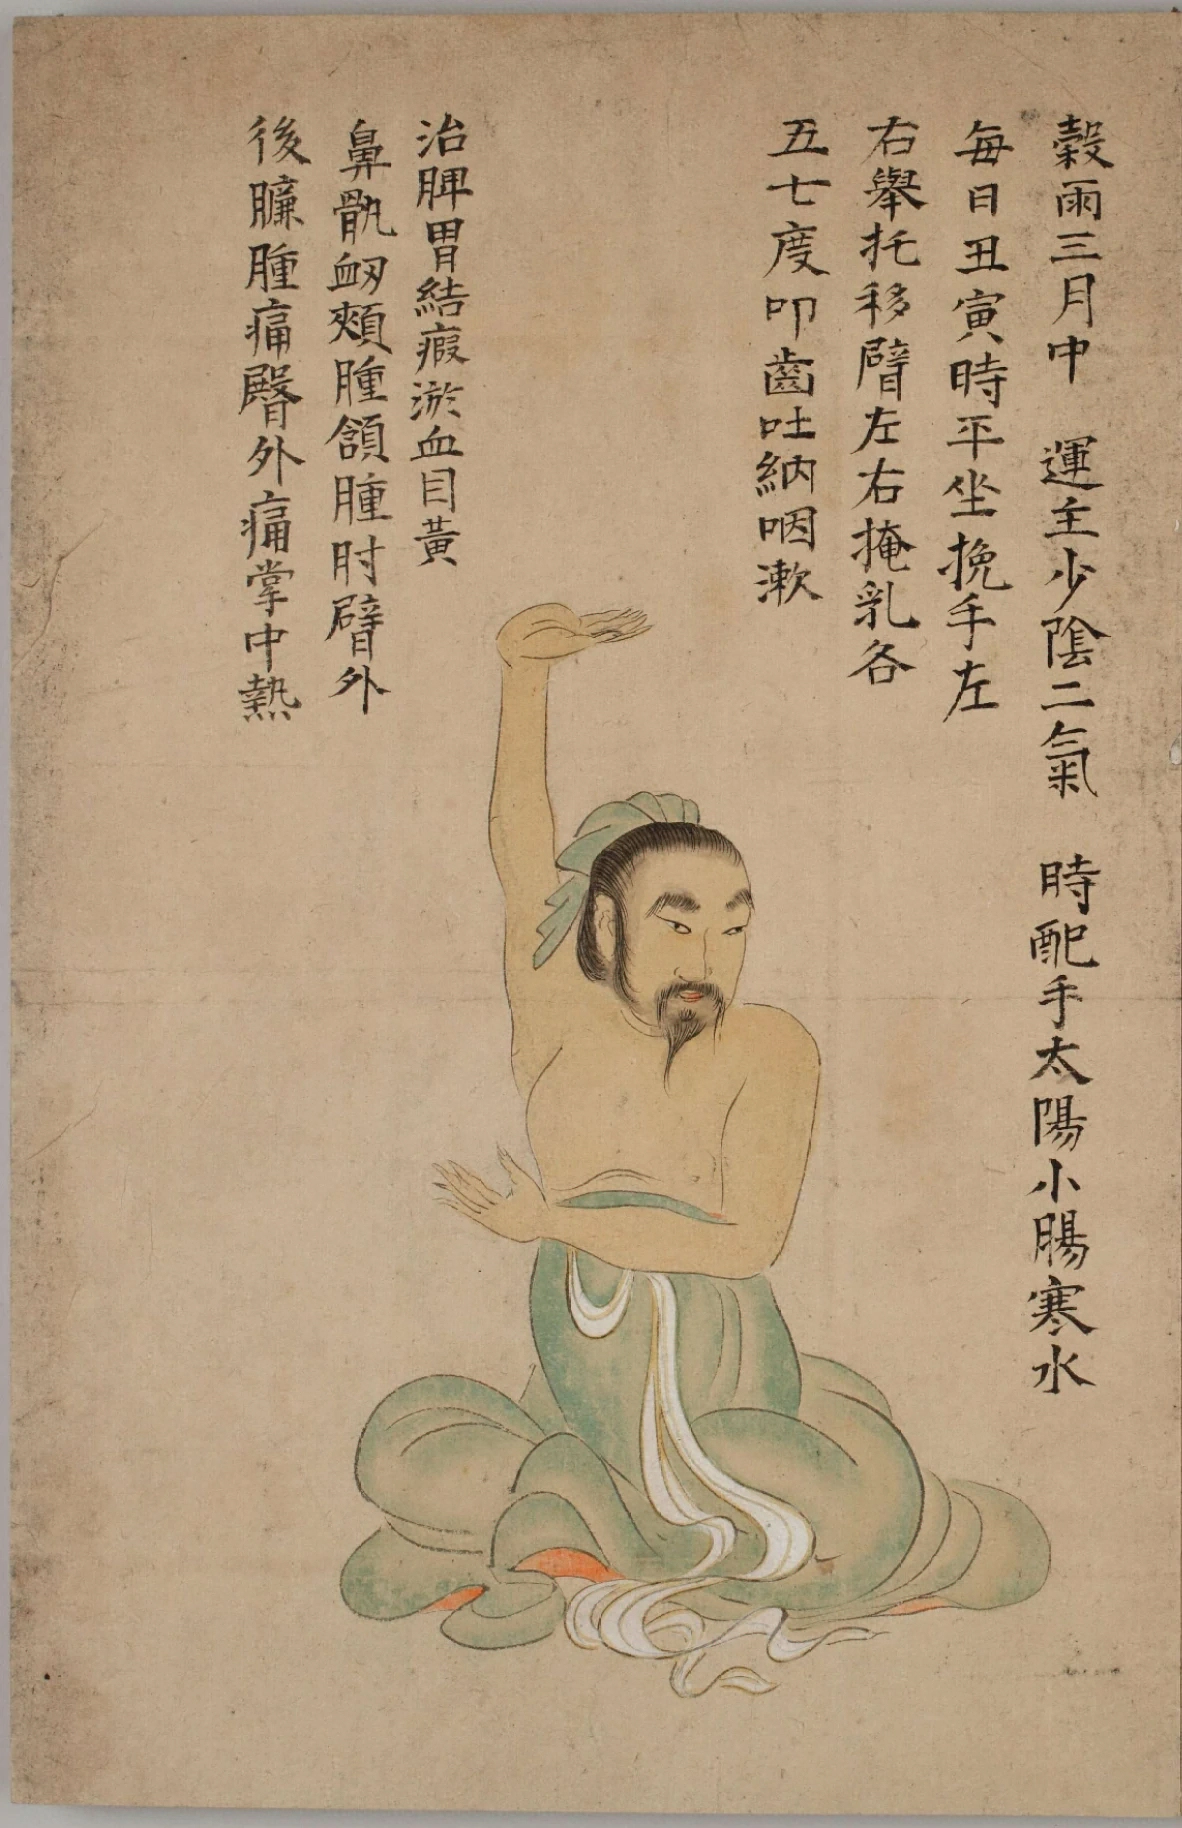 穀雨三月中　運主少陰二氣　時配手太陽小腸寒水
每日丑寅時平坐挽手左
右舉托移臂左右掩乳各
五七度叩齒吐納咽漱
治脾胃結瘕淤血目黃
鼻鼽衂頰腫頷腫肘臂外
後臁腫痛臀外痛掌中熱